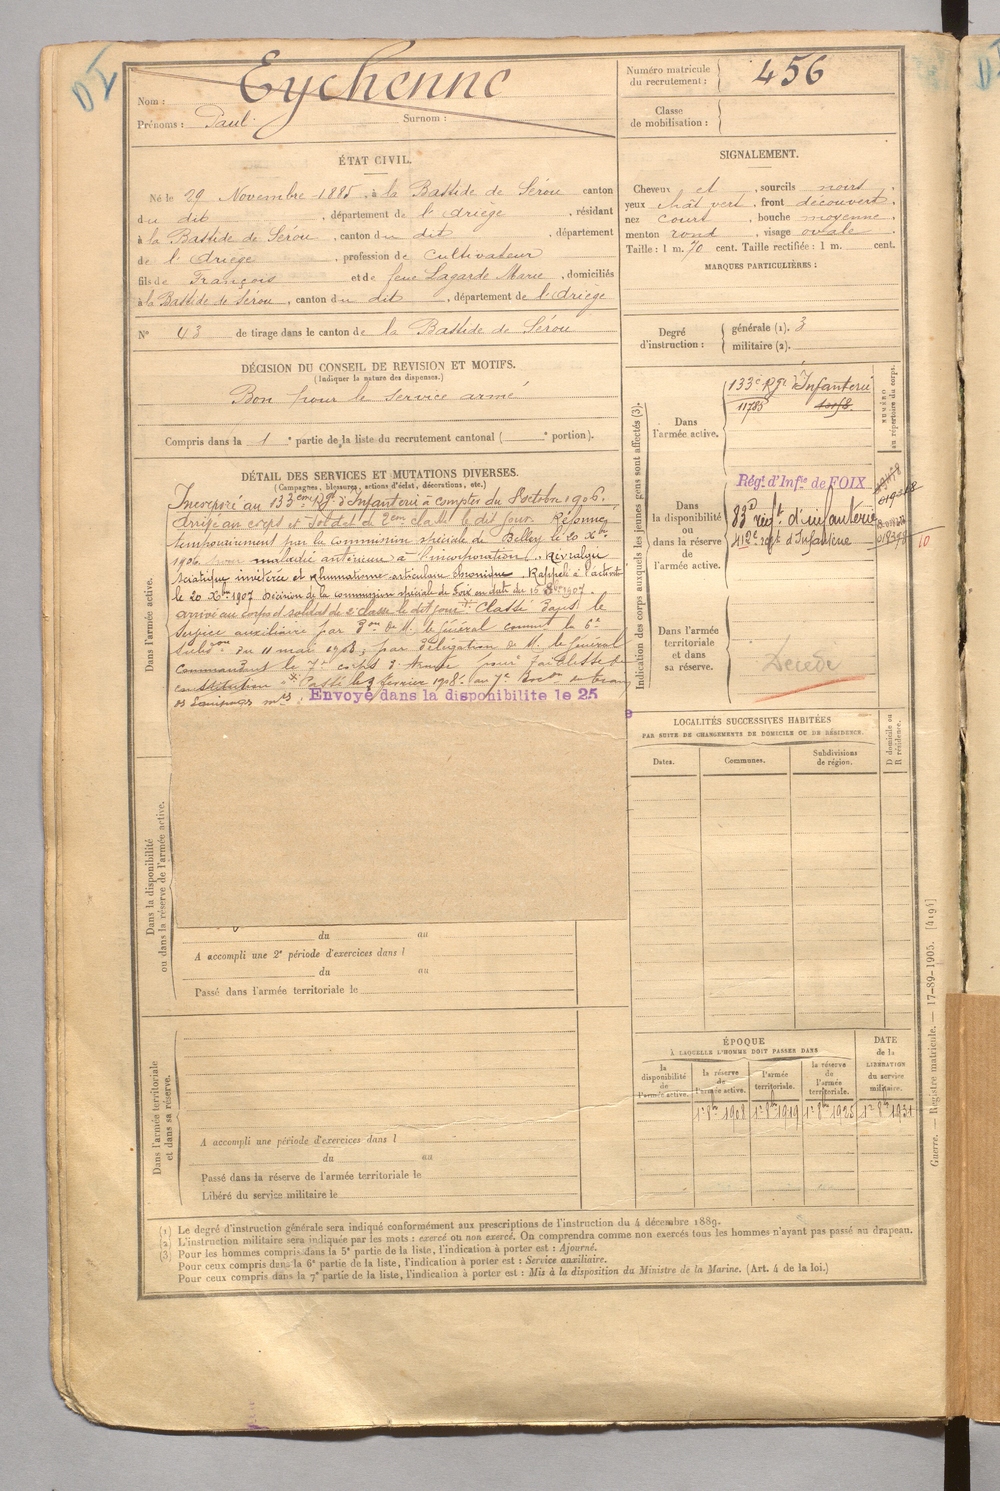 Nom : Eychenne
Prénoms : Paul Surnom :
Numéro matricule du recrutement : 456
Classe de mobilisation :
ÉTAT CIVIL.
Né le 29 Novembre 1885, à la Bastide de Sérou canton
du dit, département de l'Ariège, résidant
à la Bastide de Sérou, canton du dit, département
de l'Ariège, profession de Cultivateur
fils de François et de feue Lagarde Marie, domiciliés
à la Bastide de Sérou, canton du dit, département de l'Ariège
N° 43 de tirage dans le canton de la Bastide de Sérou
SIGNALEMENT.
Cheveux et, sourcils noirs,
yeux chât vert, front découvert,
nez court, bouche moyenne,
menton rond, visage ovale
Taille : 1 m. 70 cent. Taille rectifiée : 1 m. cent.
MARQUES PARTICULIÈRES :
Degré d'instruction : générale (1). 3
militaire (2).
DÉCISION DU CONSEIL DE REVISION ET MOTIFS.
(Indiquer la nature des dispenses.)
Bon pour le service armé
Compris dans la 1e partie de la liste du recrutement cantonal ( e portion).
DÉTAIL DES SERVICES ET MUTATIONS DIVERSES.
(Campagnes, blessures, actions d'éclat, décorations, etc.)
Incorporé au 133ème Rgt d'Infanterie à compter du 8 octobre 1906.
Arrivé au corps et soldat de 2ème classe le dit jour. Réformé
temporairement par la commission spéciale de Belley le 20 Xbre
1906 pour maladie antérieure à l'incorporation. Névralgie
sciatique invétérée et rhumatisme articulaire chronique. Rappelé à l'activité
le 20 Xbre 1907 Décision de la commission spéciale de Foix en date du 15 8bre 1907.
arrivé au corps et soldat de 2e classe le dit jour. Classé dans le
service auxiliaire par Don de M. le Général commt la 6e
Subdon du 11 mai 1908, par délégation de M. le Général
Commandant le 7e corps d'Armée pour faiblesse de
constitution Passé le 9 février 1908 au 7e
des Equipages mres
Envoyé dans la disponibilité le 25
Dans l'armée active.
Dans la disponibilité ou dans la réserve de l'armée active.
du au
A accompli une 2e période d'exercices dans l
du au
Passé dans l'armée territoriale le
Dans l'armée territoriale et dans sa réserve.
A accompli une période d'exercices dans l
du au
Passé dans la réserve de l'armée territoriale le
Libéré du service militaire le
Indication des corps auxquels les jeunes gens sont affectés (3).
NUMÉRO au répertoire du corps.
Dans l'armée active.
133e Rgt d'Infanterie
11785
Dans la disponibilité ou dans la réserve de l'armée active.
Régt d'Infie de FOIX
83e régt d'infanterie
412e régt d'Infanterie
10
Dans l'armée territoriale et dans sa réserve.
Décédé
LOCALITÉS SUCCESSIVES HABITÉES
PAR SUITE DE CHANGEMENTS DE DOMICILE OU DE RÉSIDENCE.
Dates. Communes. Subdivisions de région. D domicile ou R résidence.
ÉPOQUE
À LAQUELLE L'HOMME DOIT PASSER DANS
la disponibilité de l'armée active. la réserve de l'armée active. l'armée territoriale. la réserve de l'armée territoriale.
DATE de la LIBÉRATION du service militaire.
1er 8bre 1908 1er 8bre 1919 1er 8bre 1925 1er 8bre 1931
Guerre. — Registre matricule. — 17-89-1905. [4194]
(1) Le degré d'instruction générale sera indiqué conformément aux prescriptions de l'instruction du 4 décembre 1889.
(2) L'instruction militaire sera indiquée par les mots : exercé ou non exercé. On comprendra comme non exercés tous les hommes n'ayant pas passé au drapeau.
(3) Pour les hommes compris dans la 5e partie de la liste, l'indication à porter est : Ajourné.
Pour ceux compris dans la 6e partie de la liste, l'indication à porter est : Service auxiliaire.
Pour ceux compris dans la 7e partie de la liste, l'indication à porter est : Mis à la disposition du Ministre de la Marine. (Art. 4 de la loi.)